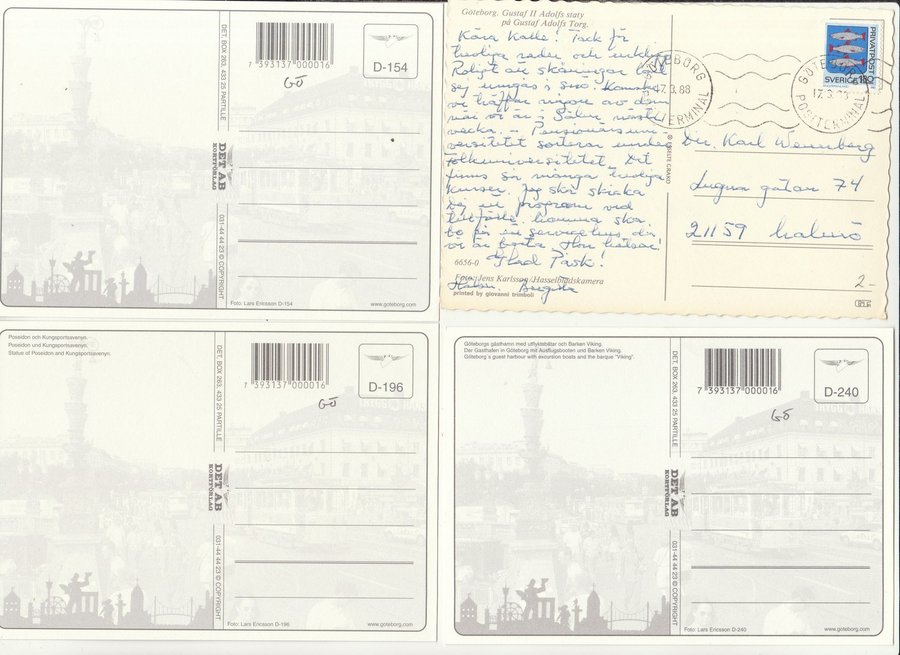 DET, BOX 263, 433 25 PARTILLE
DET AB
KORTFÖRLAG
031-44 44 23 © COPYRIGHT
7 393137 000016
GÖ
D-154
Foto: Lars Ericsson D-154
www.goteborg.com
Göteborg. Gustaf II Adolfs staty
på Gustaf Adolfs Torg.
Kära Kalle! Tack för
trevliga rader och
Roligt att skåningar
sej umgås i snö. Kanske
vi träffar någon av dem
när vi är i Sälen nästa
vecka. - Pensionärsuni-
versitetet sorterar under
Folkuniversitetet. Det
finns så många trevliga
kurser. Jag ska skicka
Dej ett program vid
tillfälle.
bo på ett servicehus, där
vi är Hon hälsar!
Glad Påsk!
6656-0
Foto: Jens Karlsson/Hasselbladskamera
Hälsn. Birgitta
printed by giovanni trimboli
© ESELTE CRAXO
PRIVATPOST
SVERIGE 180
GÖTEBORG
17.3.88
POSTTERMINAL
GÖTEBORG
17.3.88
POSTTERMINAL
Dir. Karl Wennberg
Lugna gatan 74
21159 Malmö
2-
Poseidon och Kungsportsavenyn.
Poseidon und Kungsportsavenyn.
Statue of Poseidon and Kungsportsavenyn.
DET, BOX 263, 433 25 PARTILLE
DET AB
KORTFÖRLAG
031-44 44 23 © COPYRIGHT
7 393137 000016
GÖ
D-196
Foto: Lars Ericsson D-196
www.goteborg.com
Göteborgs gästhamn med utflyktsbåtar och Barken Viking.
Der Gasthafen in Göteborg mit Ausflugsbooten und Barken Viking.
Göteborg's guest harbour with excursion boats and the barque "Viking".
DET, BOX 263, 433 25 PARTILLE
DET AB
KORTFÖRLAG
031-44 44 23 © COPYRIGHT
7 393137 000016
GÖ
D-240
Foto: Lars Ericsson D-240
www.goteborg.com